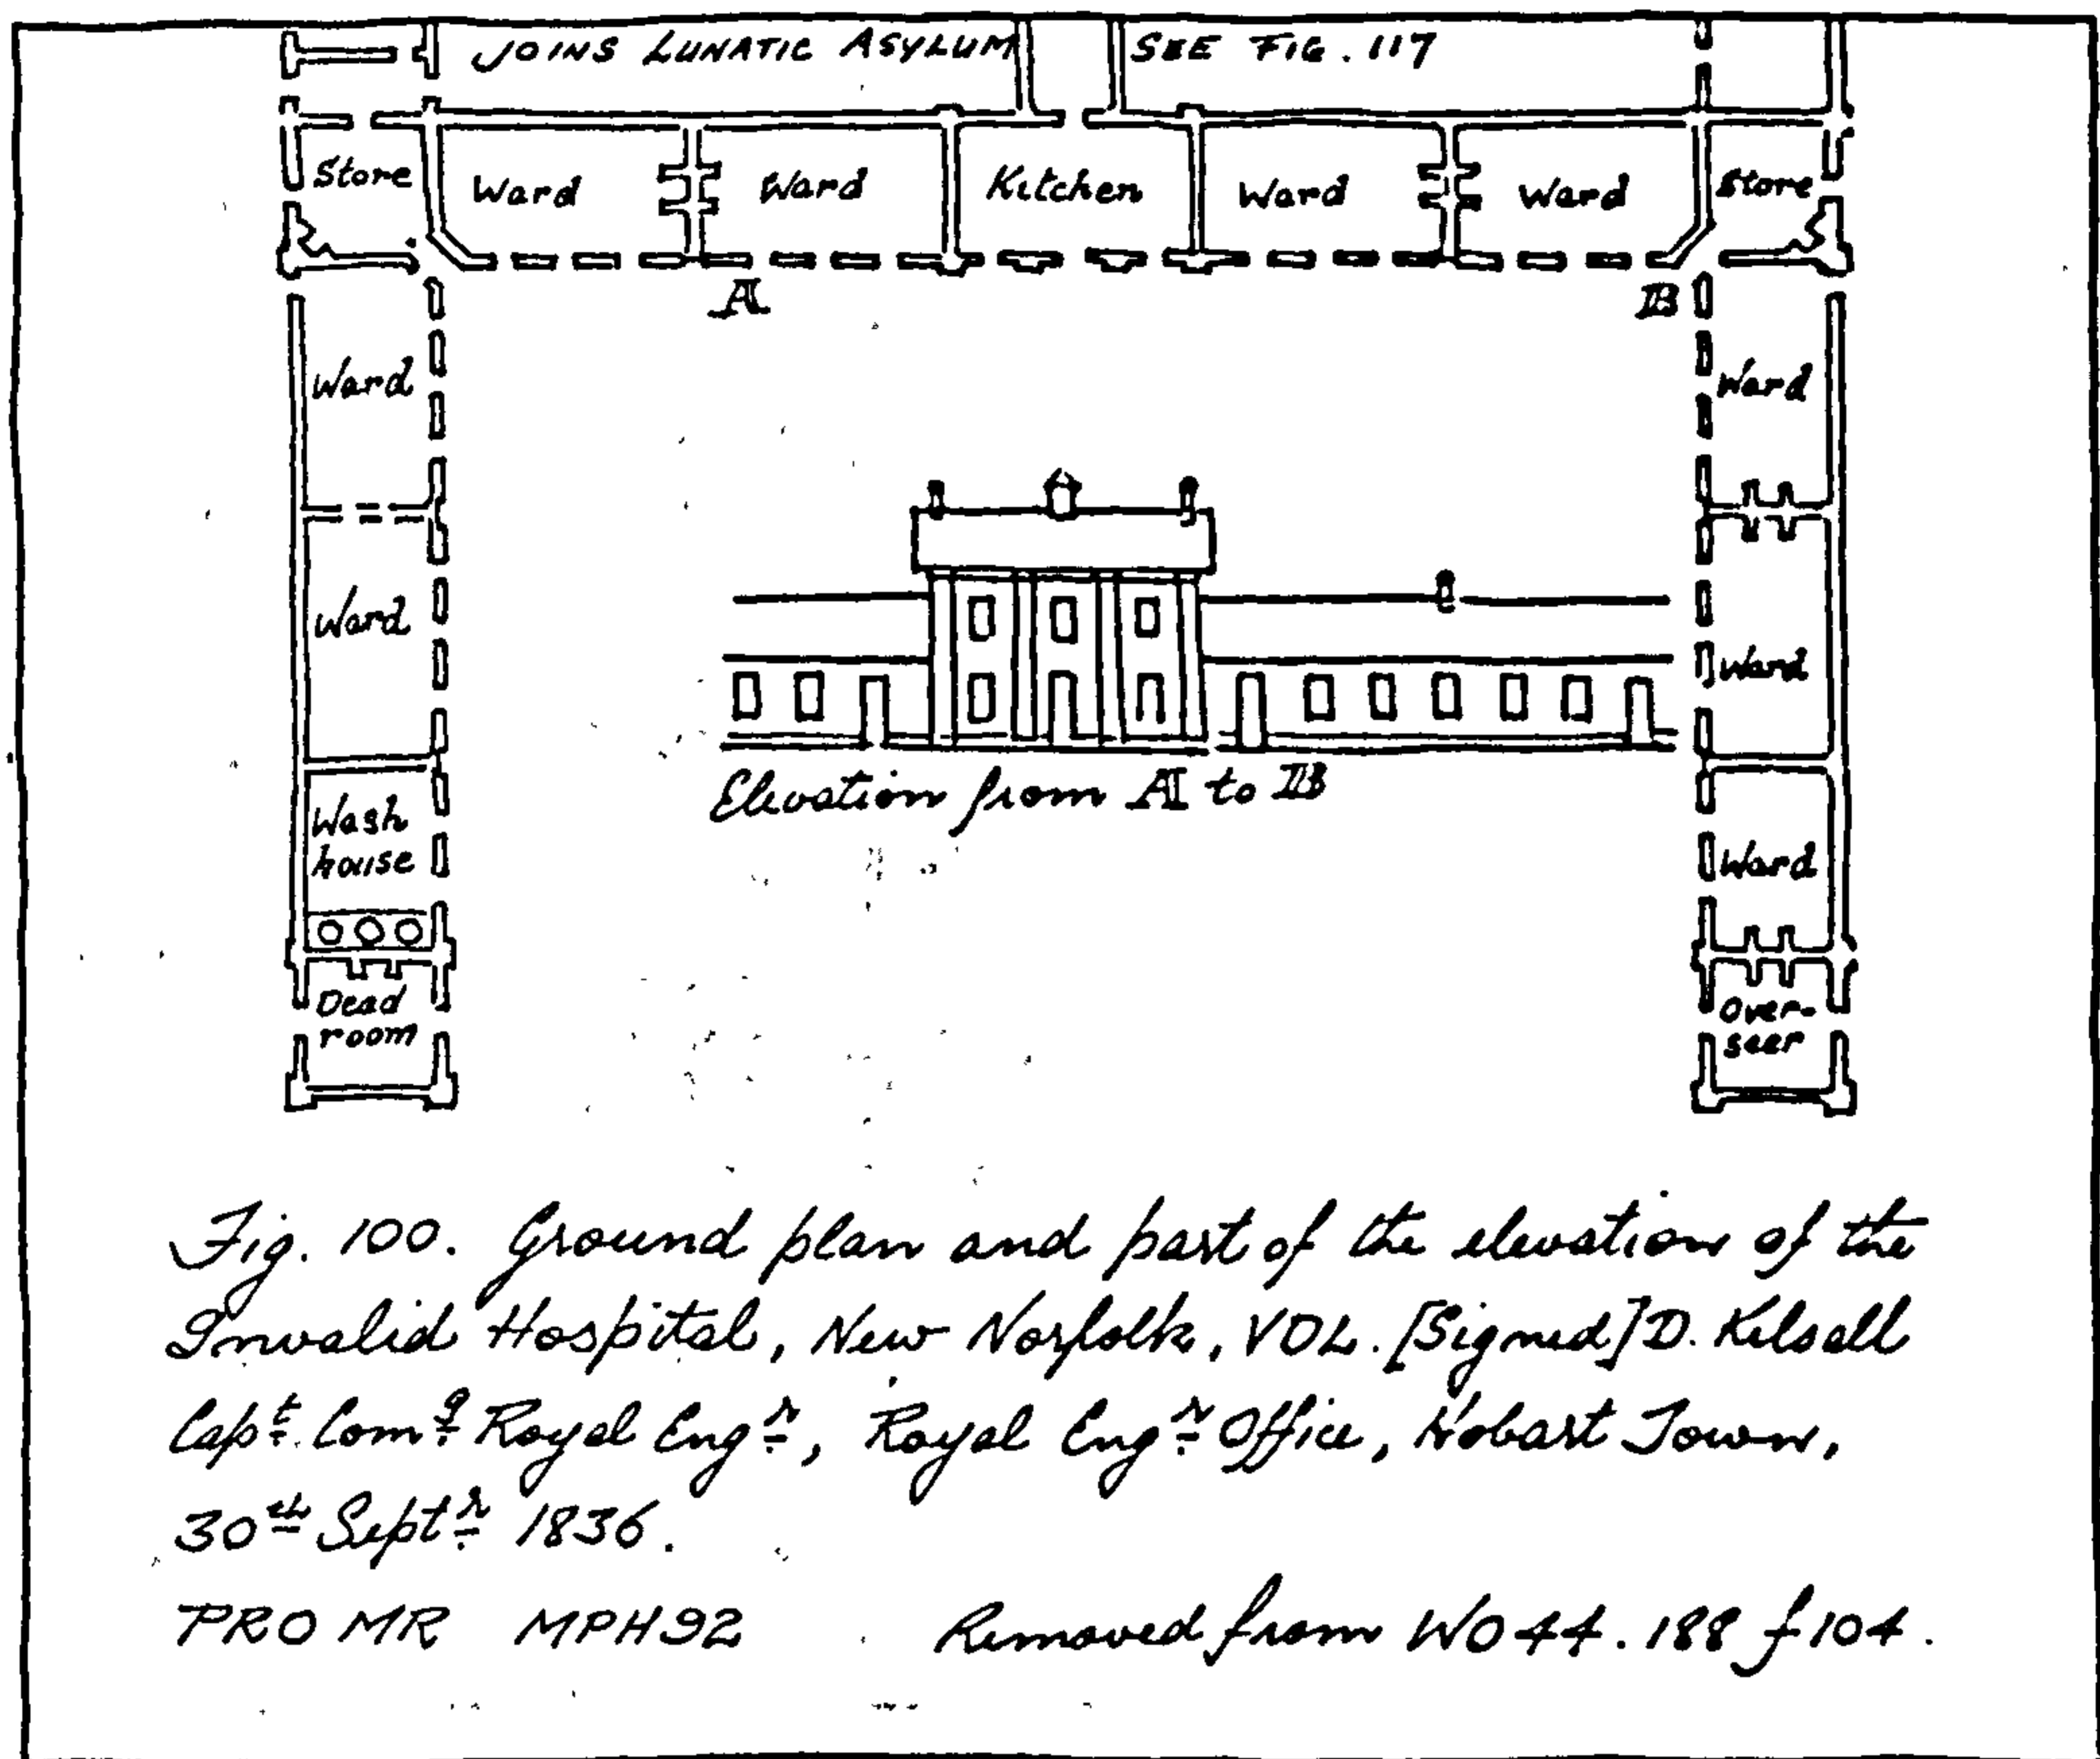 JOINS LUNATIC ASYLUM SEE FIG. 117
Store Ward Ward Kitchen Ward Ward Store
A B
Ward Ward
Ward Ward
Wash
house
Ward
Dead
room
Over-
seer
Elevation from A to B
Fig. 100. Ground plan and part of the elevation of the
Invalid Hospital, New Norfolk, VDL. [Signed] D. Kelsall
Capt. Comg Royal Engr, Royal Engr Office, Hobart Town,
30th Septr 1836.
PRO MR MPH92 Removed from WO 44. 188 f104.